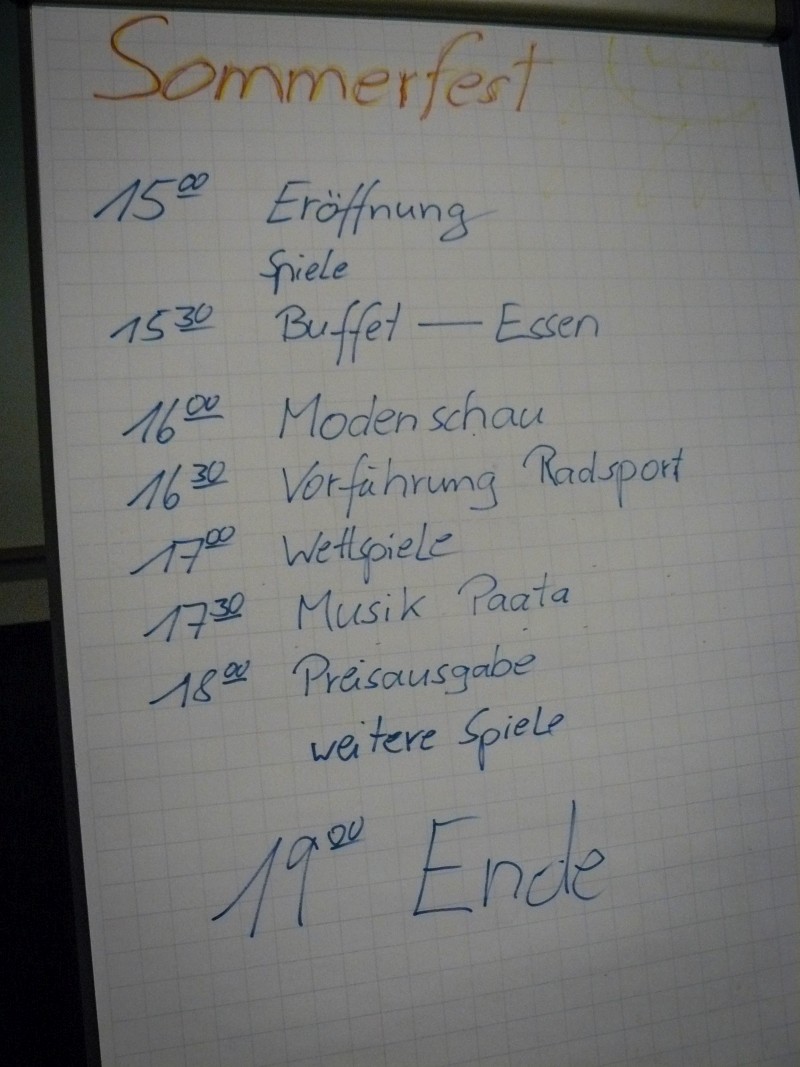 Sommerfest
15 00 Eröffnung
Spiele
15 30 Buffet — Essen
16 00 Modenschau
16 30 Vorführung Radsport
17 00 Wettspiele
17 30 Musik Paata
18 00 Preisausgabe
weitere Spiele
19 00 Ende